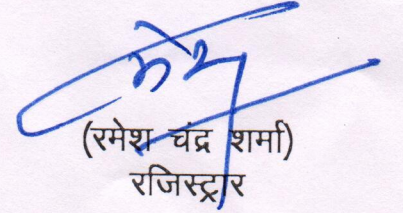 (रमेश चंद्र शर्मा)
रजिस्ट्रार